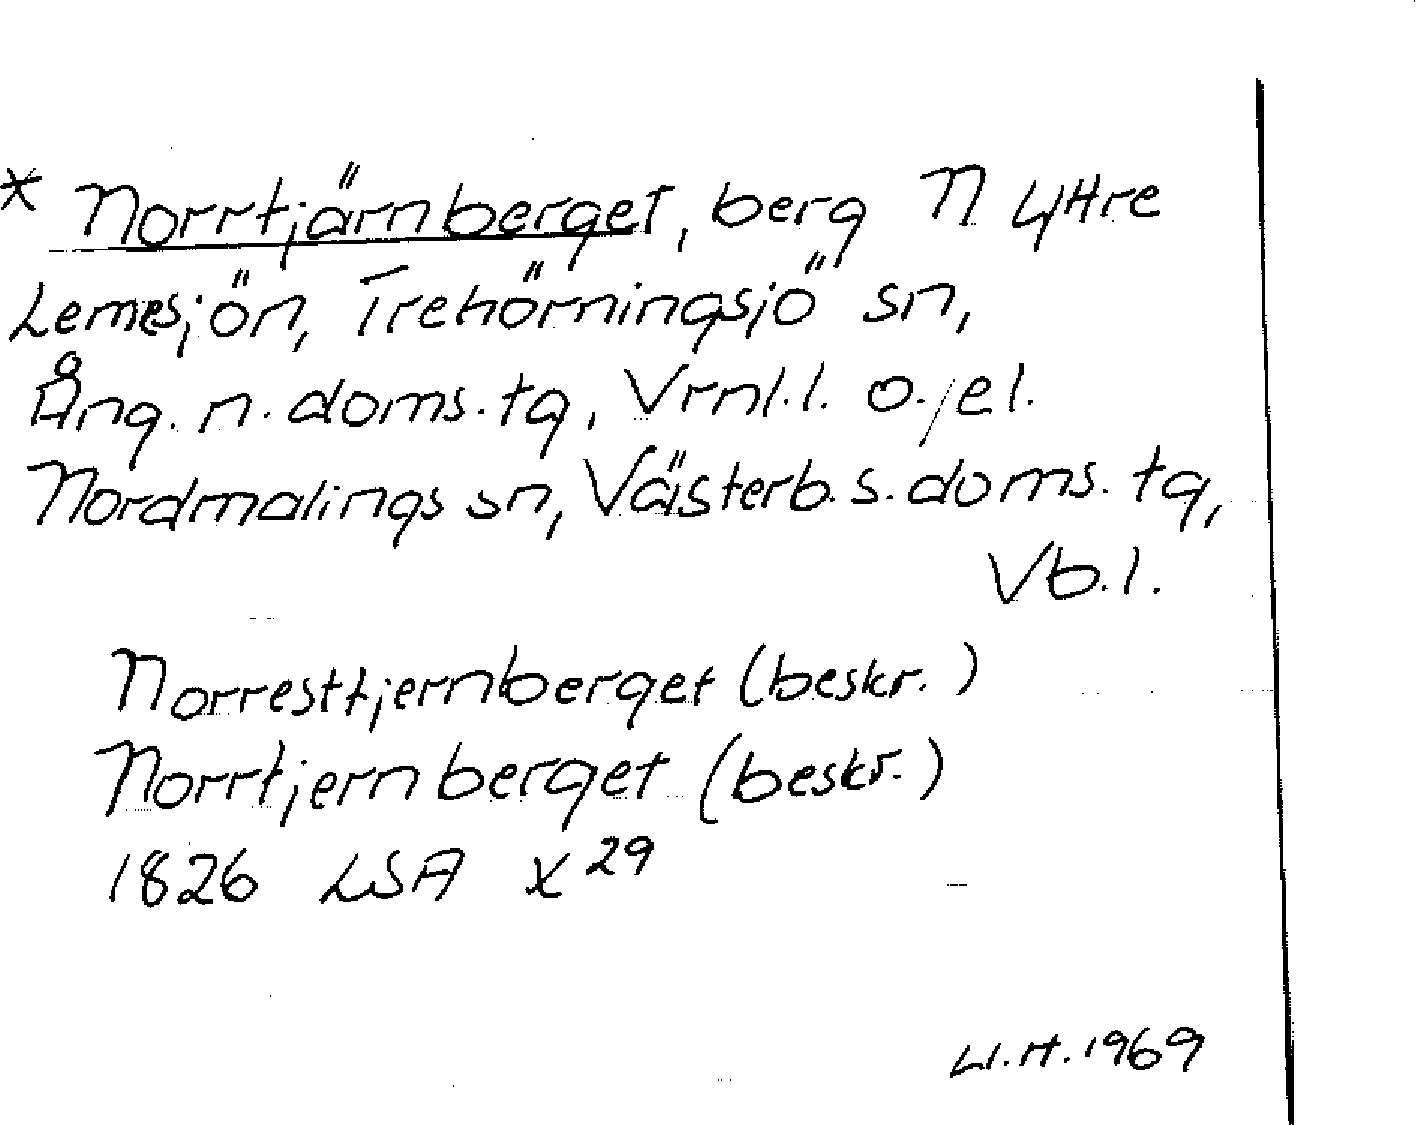 * Norrtjärnberget, berg N Yttre
Lemesjön, Trehörningsjö sn,
Ång. n. doms. tg, Vrnl. l. o./el.
Nordmalings sn, Västerb. s. doms. tg,
Vb. l.
Norresttjernberget (beskr.)
Norrtjernberget (beskr.)
1826 LSA X 29
LI. H. 1969